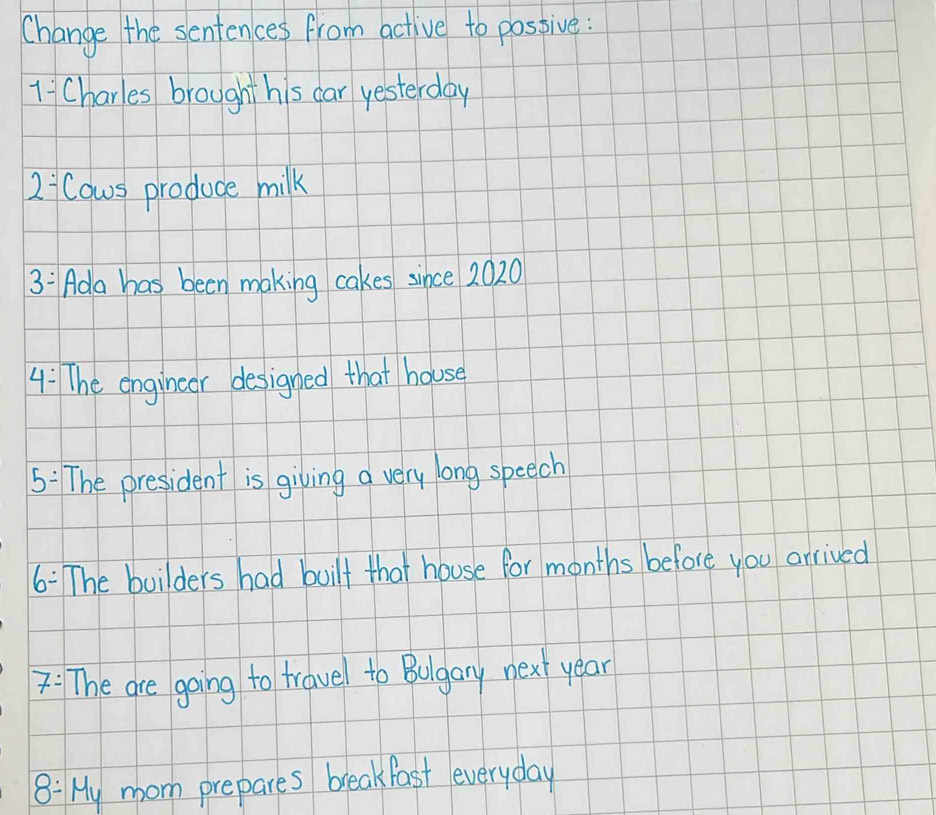 Change the sentences from active to passive:
1- Charles brought his car yesterday
2- Cows produce milk
3- Ada has been making cakes since 2020
4- The engineer designed that house
5- The president is giving a very long speech
6- The builders had built that house for months before you arrived
7- The are going to travel to Bulgary next year
8- My mom prepares breakfast everyday